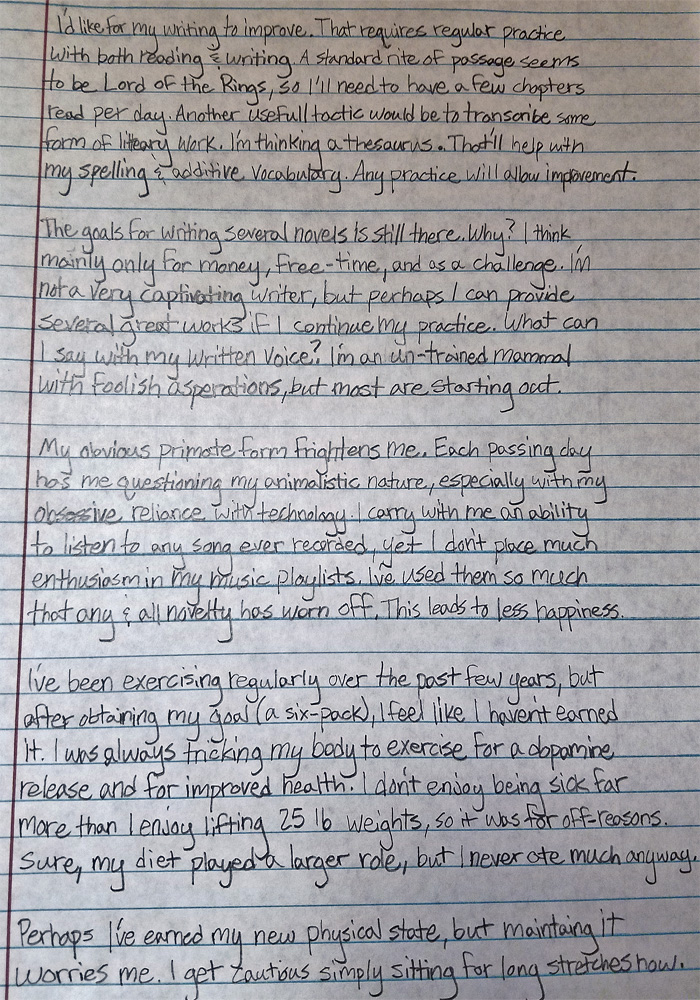 I'd like for my writing to improve. That requires regular practice
with both reading & writing. A standard rite of passage seems
to be Lord of the Rings, so I'll need to have a few chapters
read per day. Another usefull tactic would be to transcribe some
form of litteary work. I'm thinking a thesaurus. That'll help with
my spelling & additive vocabulary. Any practice will allow improvement.

The goals for writing several novels is still there. Why? I think
mainly only for money, free-time, and as a challenge. I'm
not a very captivating writer, but perhaps I can provide
several great works if I continue my practice. What can
I say with my written voice? I'm an un-trained mammal
with foolish asperations, but most are starting out.

My obvious primate form frightens me. Each passing day
has me questioning my animalistic nature, especially with my
obsessive reliance with technology. I carry with me an ability
to listen to any song ever recorded, yet I don't place much
enthusiasm in my music playlists. I've used them so much
that any & all novelty has worn off. This leads to less happiness.

I've been exercising regularly over the past few years, but
after obtaining my goal (a six-pack), I feel like I haven't earned
it. I was always tricking my body to exercise for a dopamine
release and for improved health. I don't enjoy being sick far
more than I enjoy lifting 25 lb weights, so it was for off-reasons.
Sure, my diet played a larger role, but I never ate much anyway.

Perhaps I've earned my new physical state, but maintaing it
worries me. I get cautious simply sitting for long stretches now.